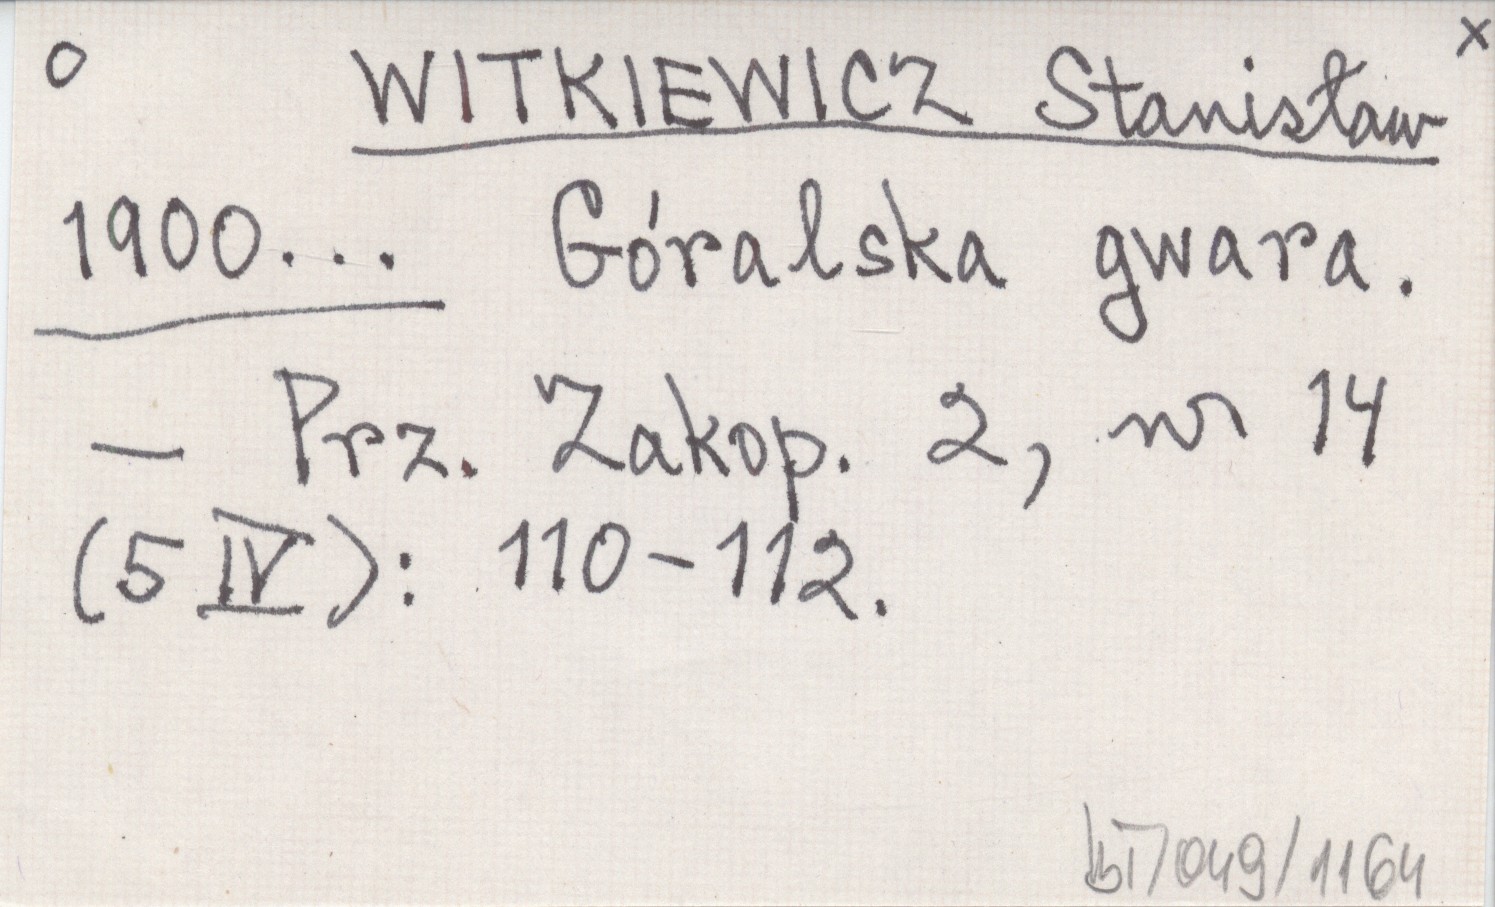 o WITKIEWICZ Stanisław x
1900... Góralska gwara.
— Prz. Zakop. 2, nr 14
(5 IV): 110-112.
/049/1164